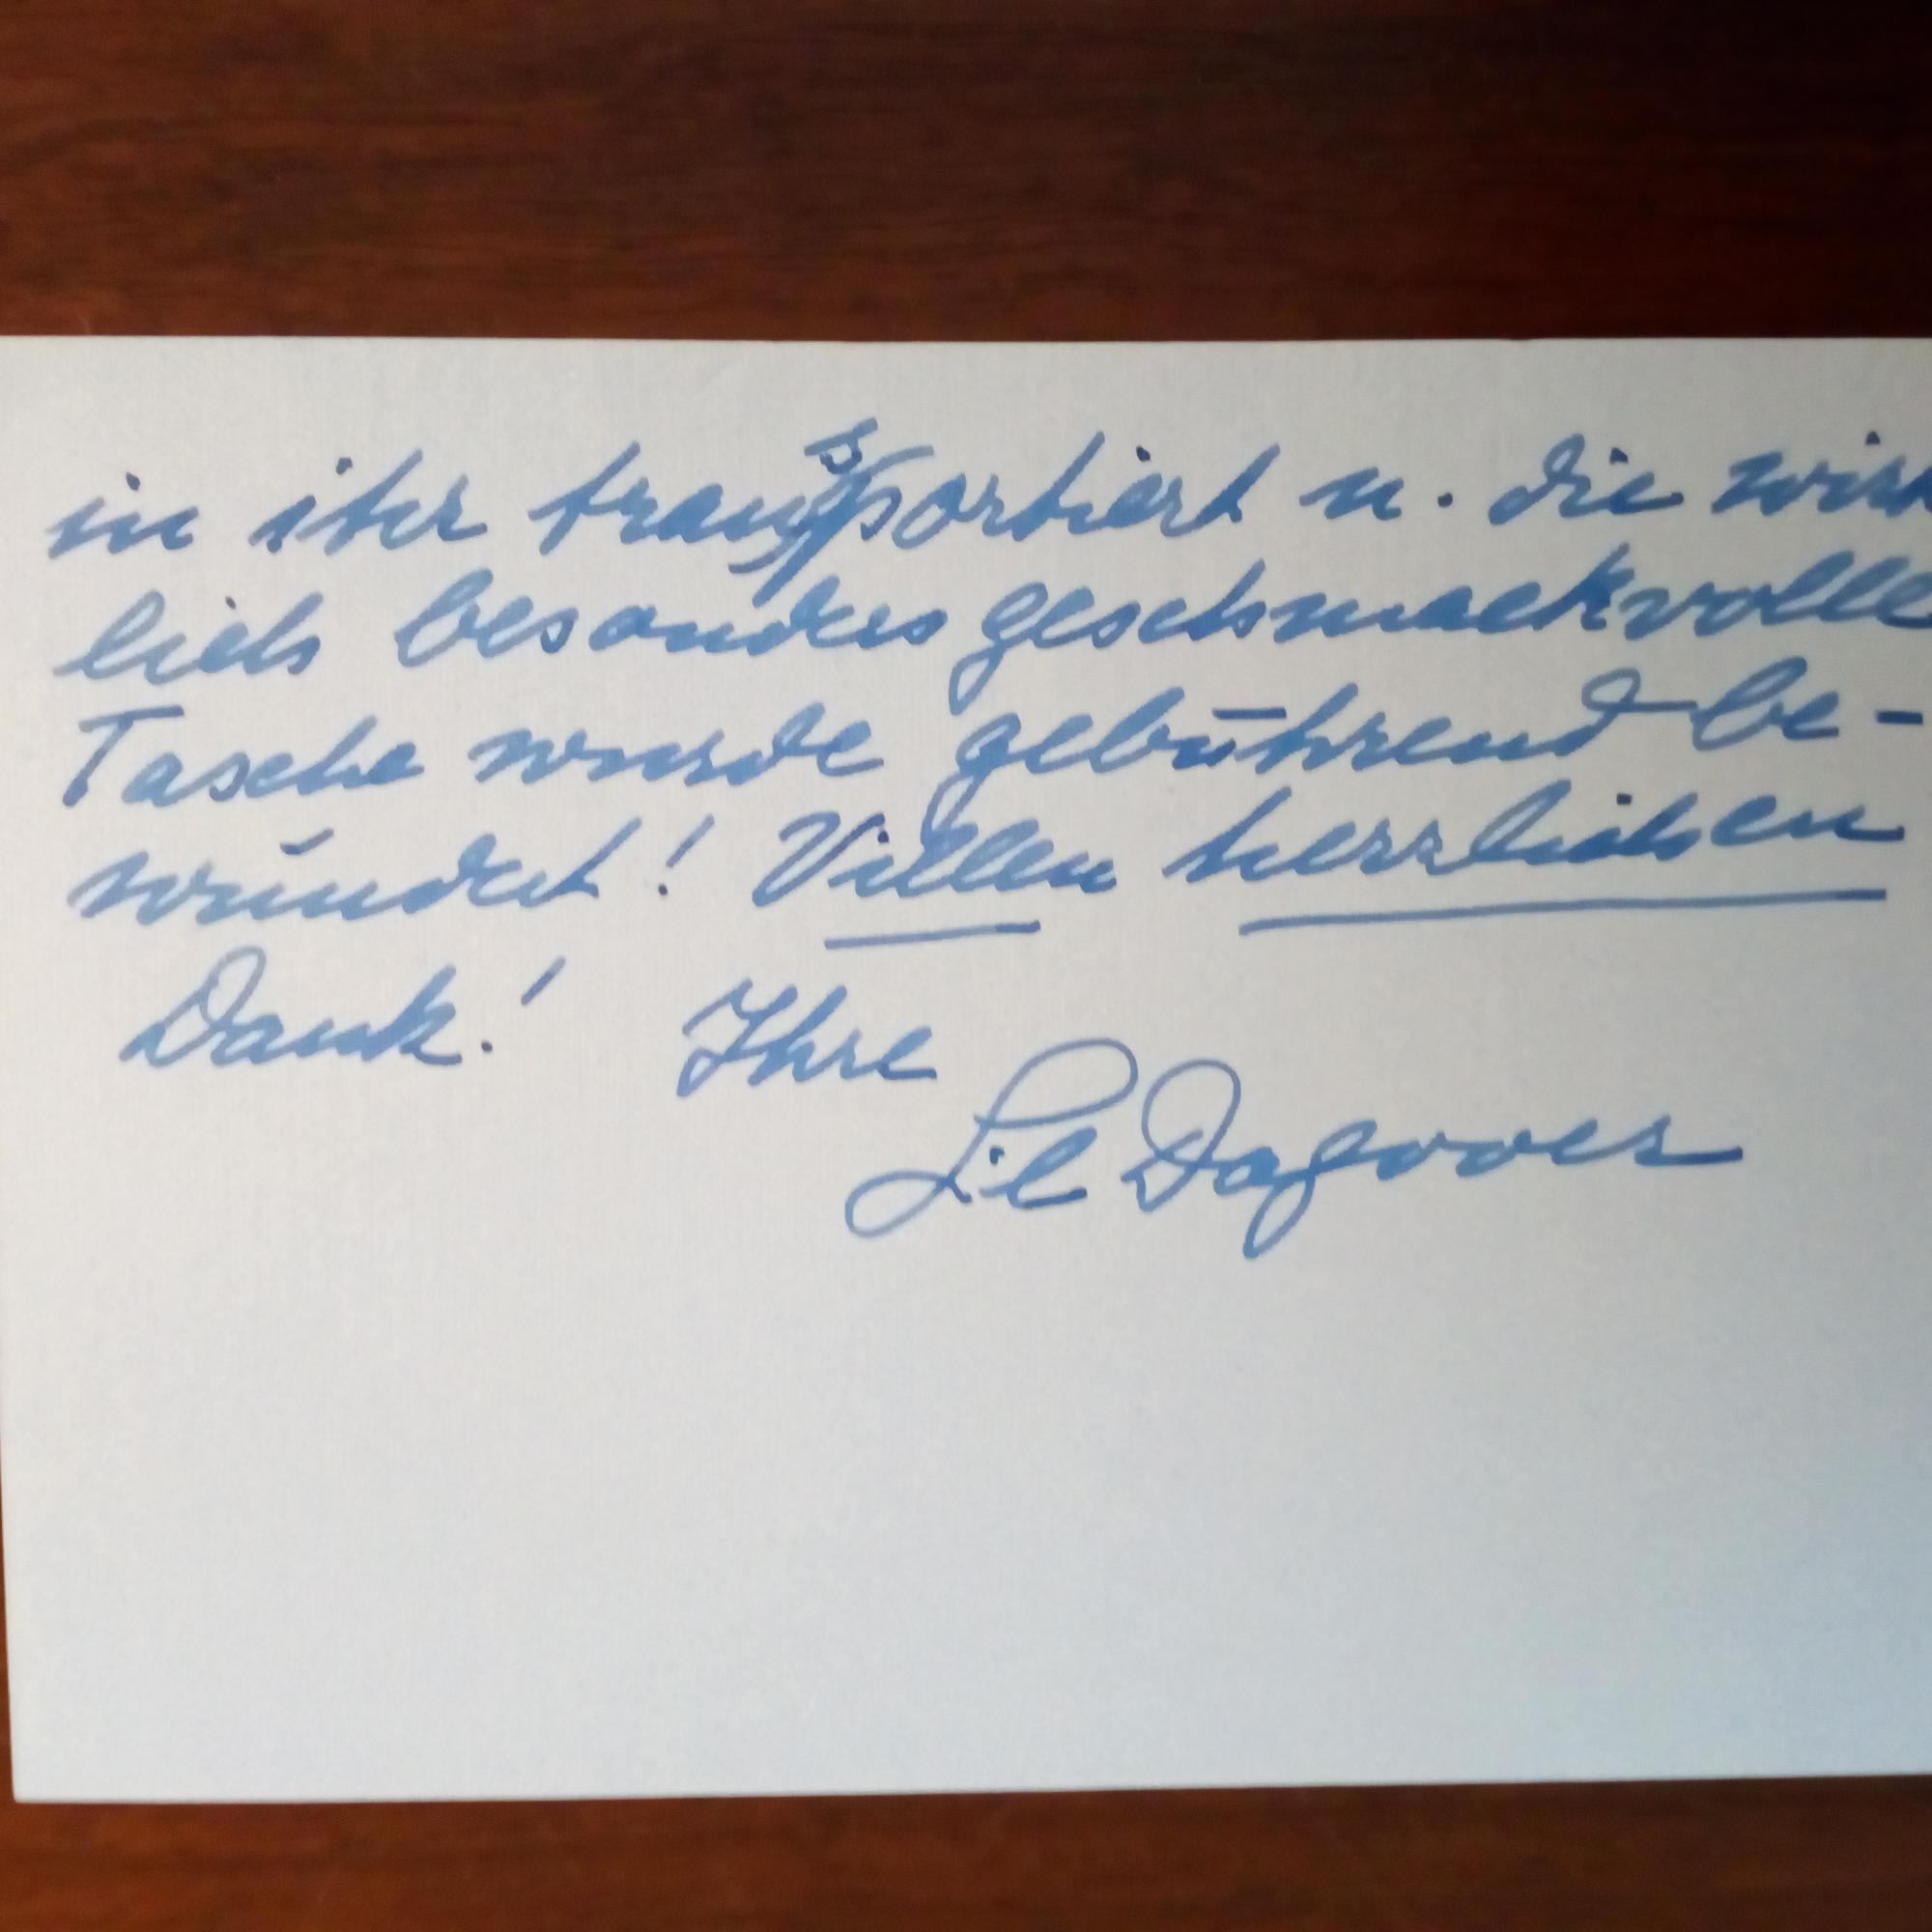 in ihr transportiert u. die wirk
lich besonders geschmackvolle
Tasche wurde gebührend be-
wundert! Vielen herzlichen
Dank! Ihre
Lil Dagover